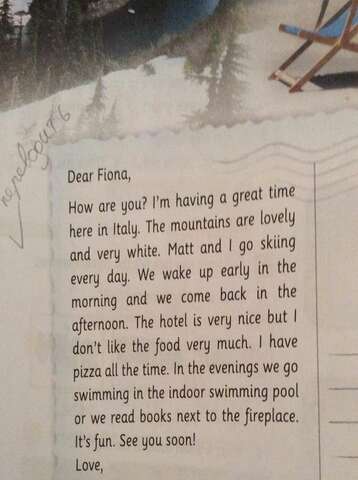 переводить
Dear Fiona,
How are you? I'm having a great time
here in Italy. The mountains are lovely
and very white. Matt and I go skiing
every day. We wake up early in the
morning and we come back in the
afternoon. The hotel is very nice but I
don't like the food very much. I have
pizza all the time. In the evenings we go
swimming in the indoor swimming pool
or we read books next to the fireplace.
It's fun. See you soon!
Love,